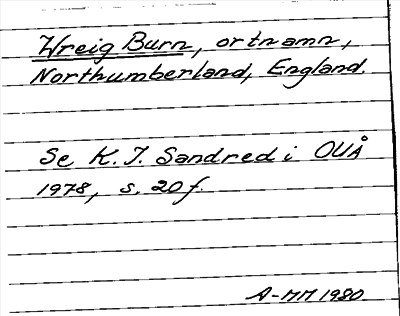 Wreig Burn, ortnamn,
Northumberland, England.
Se K. I. Sandred i OUÅ
1978, s. 20 f.
A-MM 1980